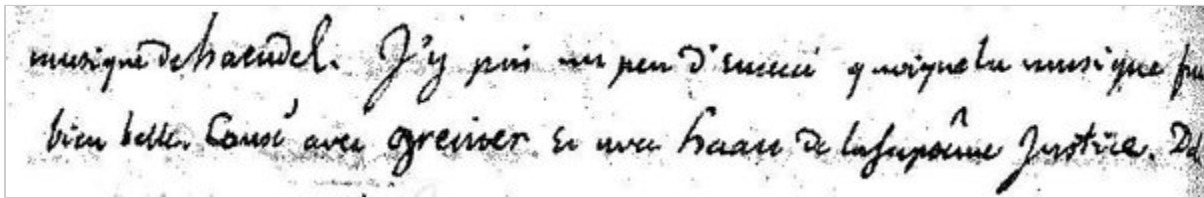 musique de haendel. J'y pris un peu d'ennui quoique la musique fu
bien belle. Causé avec Greiner et avec haan de la suprême Justice. De